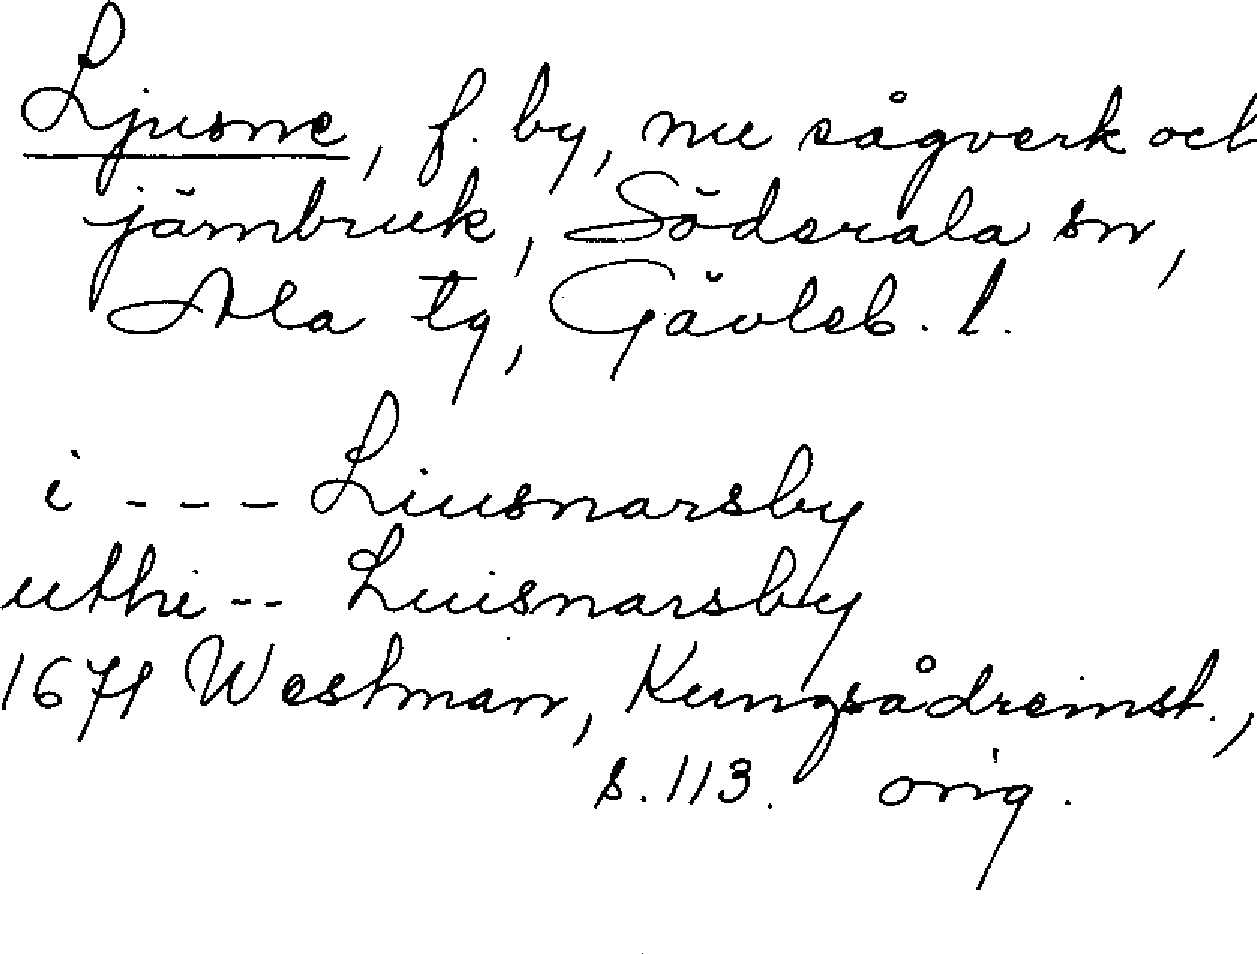 Ljusne, f. by, nu sågverk och
järnbruk, Söderala sn,
Ala tg, Gävleb. l.
i - - - Liusnarsby
uthi - - Luisnarsby
1671 Westman, Kungsådreinst.,
s. 113. orig.